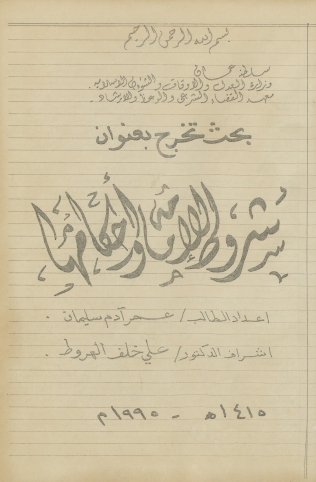 بسم الله الرحمن الرحيم
سلطنة عمان
وزارة العدل والأوقاف والشؤون الاسلامية
معهد القضاء الشرعي والوعظ والارشاد .
بحث تخرج بعنوان
شروط الإمامة وأحكامها
اعداد الطالب / عمر آدم سليمان .
اشراف الدكتور / علي خلف الهروط .
١٤١٠هـ - ١٩٩٠م